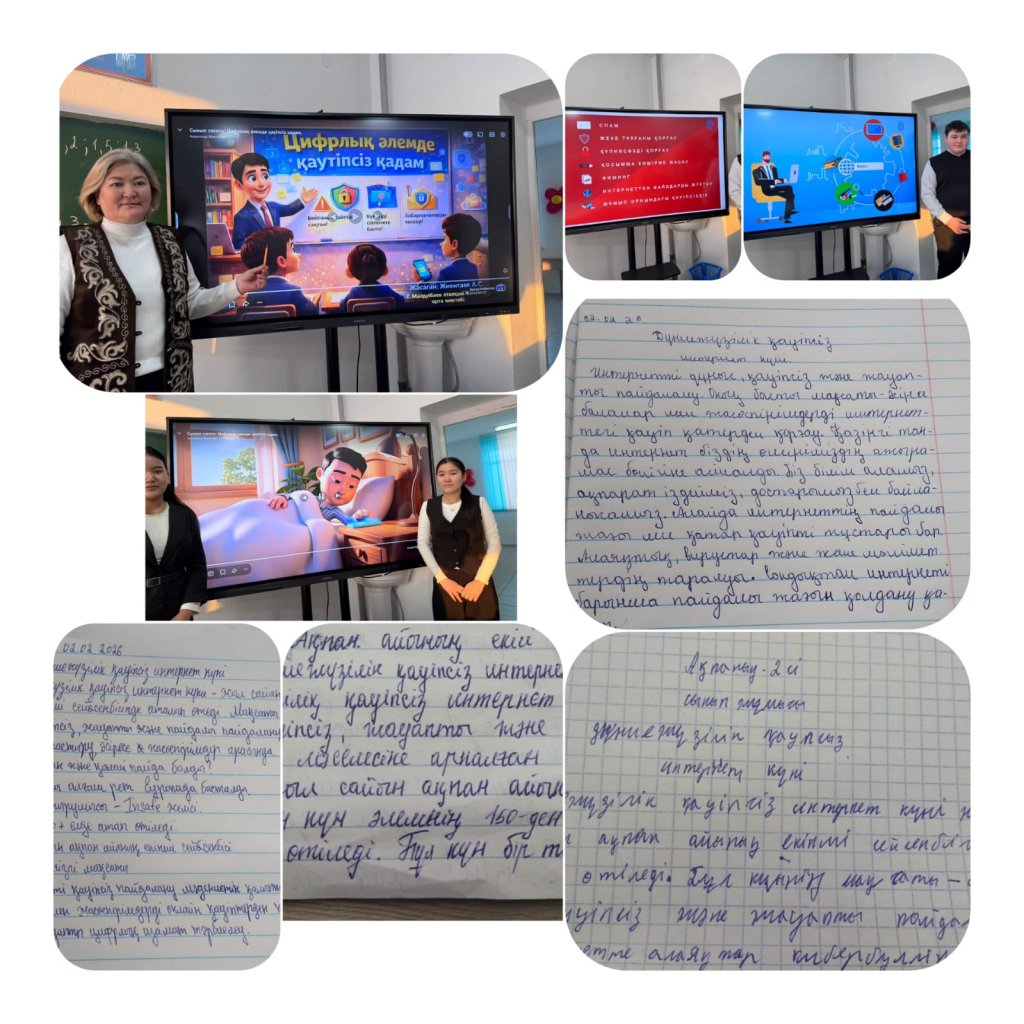 Сынып сағаты: Цифрлық әлемде қауіпсіз қадам.
Цифрлық әлемде
қаутіпсіз қадам
Бейтаныс
сақтан!
сілемеге
баспа!
Хабарламаларды
тексер!
Жасаған: Жиентаев А.С.
орта мектебі
СПАМ
ЖЕКЕ ТҰЛҒАНЫ ҚОРҒАУ
ҚҰПИЯСӨЗДІ ҚОРҒАУ
ҚОСЫМША КӨШІРМЕ ЖАСАУ
ФИШИНГ
ИНТЕРНЕТТЕН ФАЙЛДАРДЫ ЖҮКТЕУ
ЖҰМЫС ОРНЫНДАҒЫ ҚАУІПСІЗДІК
Сынып сағаты: Цифрлық әлемде қауіпсіз қадам.
02.02.26
Дүниежүзілік қауіпсіз
интернет күні
Интернетті дұрыс, қауіпсіз және жауап-
ты пайдалану. Оның басты мақсаты - әсіре
балалар мен жасөспірімдерді интернет-
тегі қауіп қатерден қорғау. Қазіргі таң-
да интернет біздің өміріміздің ажыра-
мас бөлігіне айналды. Біз білім аламыз,
ақпарат іздейміз, достарымызбен байла-
нысамыз. Алайда интернеттің пайдалы
жағы мен қатар қауіпті тұстары бар.
Алаяқтық, вирустар және жеке мәлімет-
тердің таралуы. Сондықтан интернетті
барынша пайдалы жағын қолдану қа-
02.02.2026
қауіпсіз интернет күні
қауіпсіз интернет күні - жыл сайын
сейсенбісінде аталып өтеді. Мақсаты
жауапты және пайдалы пайдалану
әсіресе жасөспірімдер арасында.
және қалай пайда болды?
алғаш рет Еуропада басталды.
- Insafe желісі
елде аталып өтіледі.
ақпан айының екінші сейсенбісі
негізгі мақсаты
қауіпсіз пайдалану мәдениетін қалыптас
жасөспірімдерді онлайн қауіптерден
цифрлық азамат тәрбиелеу.
Ақпан айының екін
қауіпсіз интерне
қауіпсіз интернет
жауапты және
мәселесіне арналған
сайын ақпан айын
күн әлемнің 150-ден
өтіледі. Бұл күн бір
Ақпаның-2 сі
сынып жұмысы
Дүниежүзілік қауіпсіз
интернет күні
қауіпсіз интернет күні
ақпан айының екінші сейсенбі
өтіледі. Бұл күннің мақсаты -
және жауапты пайда
алаяқтар кибербуллин